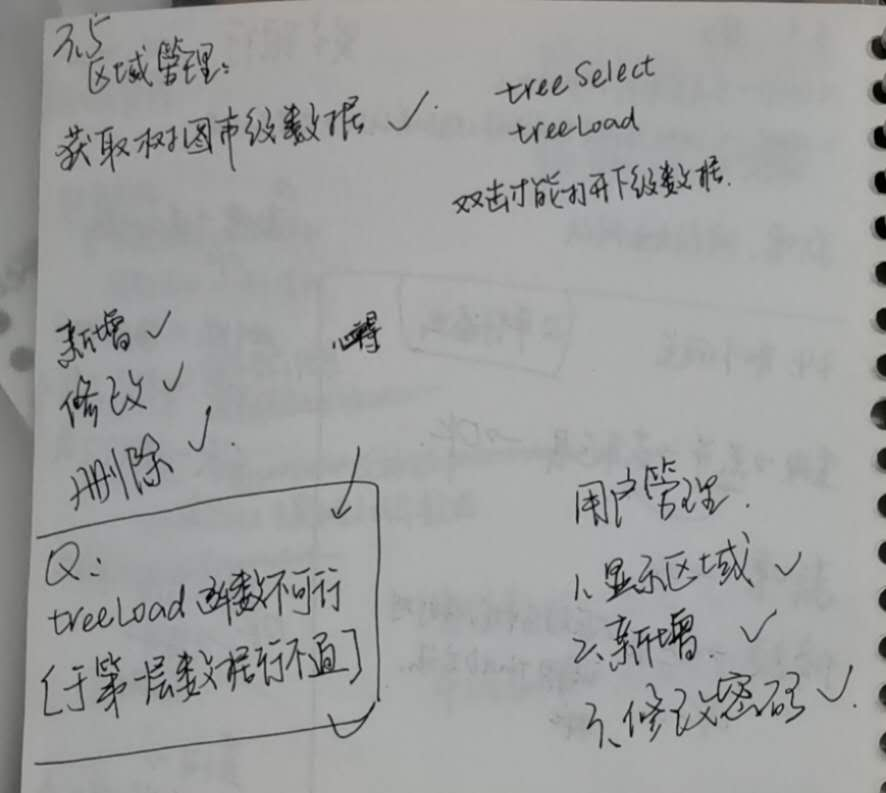 3.5
区域管理:
获取树图市级数据 ✓.
treeSelect
treeLoad
双击才能打开下级数据.
新增 ✓
修改 ✓
删除 ✓.
心得
Q:
treeLoad 函数不可行
[于第一层数据行不通]
用户管理.
1. 显示区域 ✓
2. 新增. ✓
3. 修改密码 ✓.